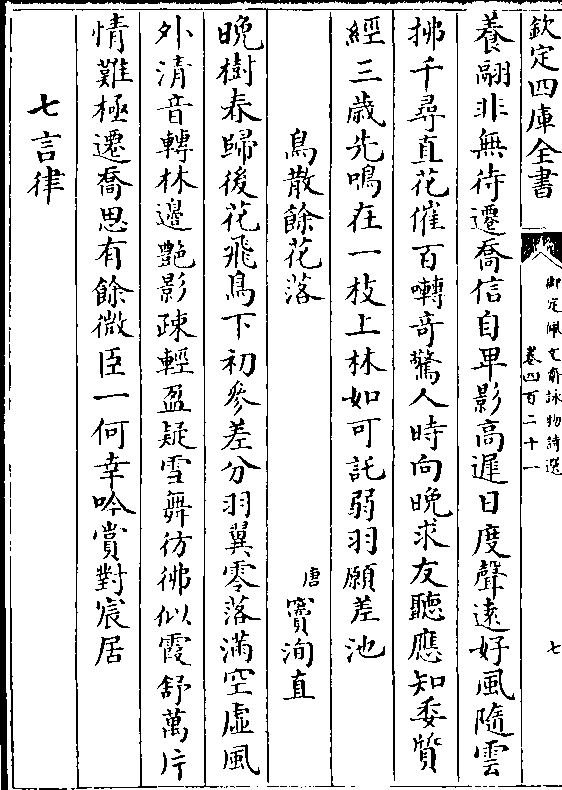 欽定四庫全書
御定佩文齋詠物詩選
卷四百二十一
七
養翮非無待遷喬信自卑影高遲日度聲遠好風隨雲
拂千尋直花催百囀奇驚人時向晚求友聽應知委質
經三歲先鳴在一枝上林如可託弱羽願差池
鳥散餘花落
唐竇洵直
晩樹春歸後花飛鳥下初參差分羽翼零落滿空虛風
外清音轉林邊艷影疎輕盈疑雪舞彷彿似霞舒萬片
情難極遷喬思有餘微臣一何幸吟賞對宸居
七言律